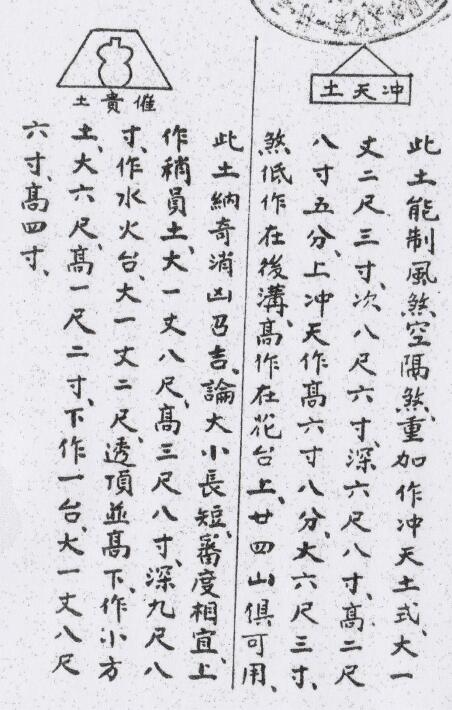 冲天土
此土能制風煞空隔煞、重加作冲天土式、大一
丈二尺三寸、次八尺六寸、深六尺八寸、高二尺
八寸五分、上冲天作高六寸八分、大六尺三寸、
煞低作在後溝、高作在花台上、廿四山俱可用、
催貴土
此土納奇消凶召吉、論大小長短、審度相宜、上
作稍員土、大一丈八尺、高三尺八寸、深九尺八
寸、作水火台、大一丈二尺、透頂並高下、作小方
土、大六尺、高一尺二寸、下作一台、大一丈八尺
六寸、高四寸、